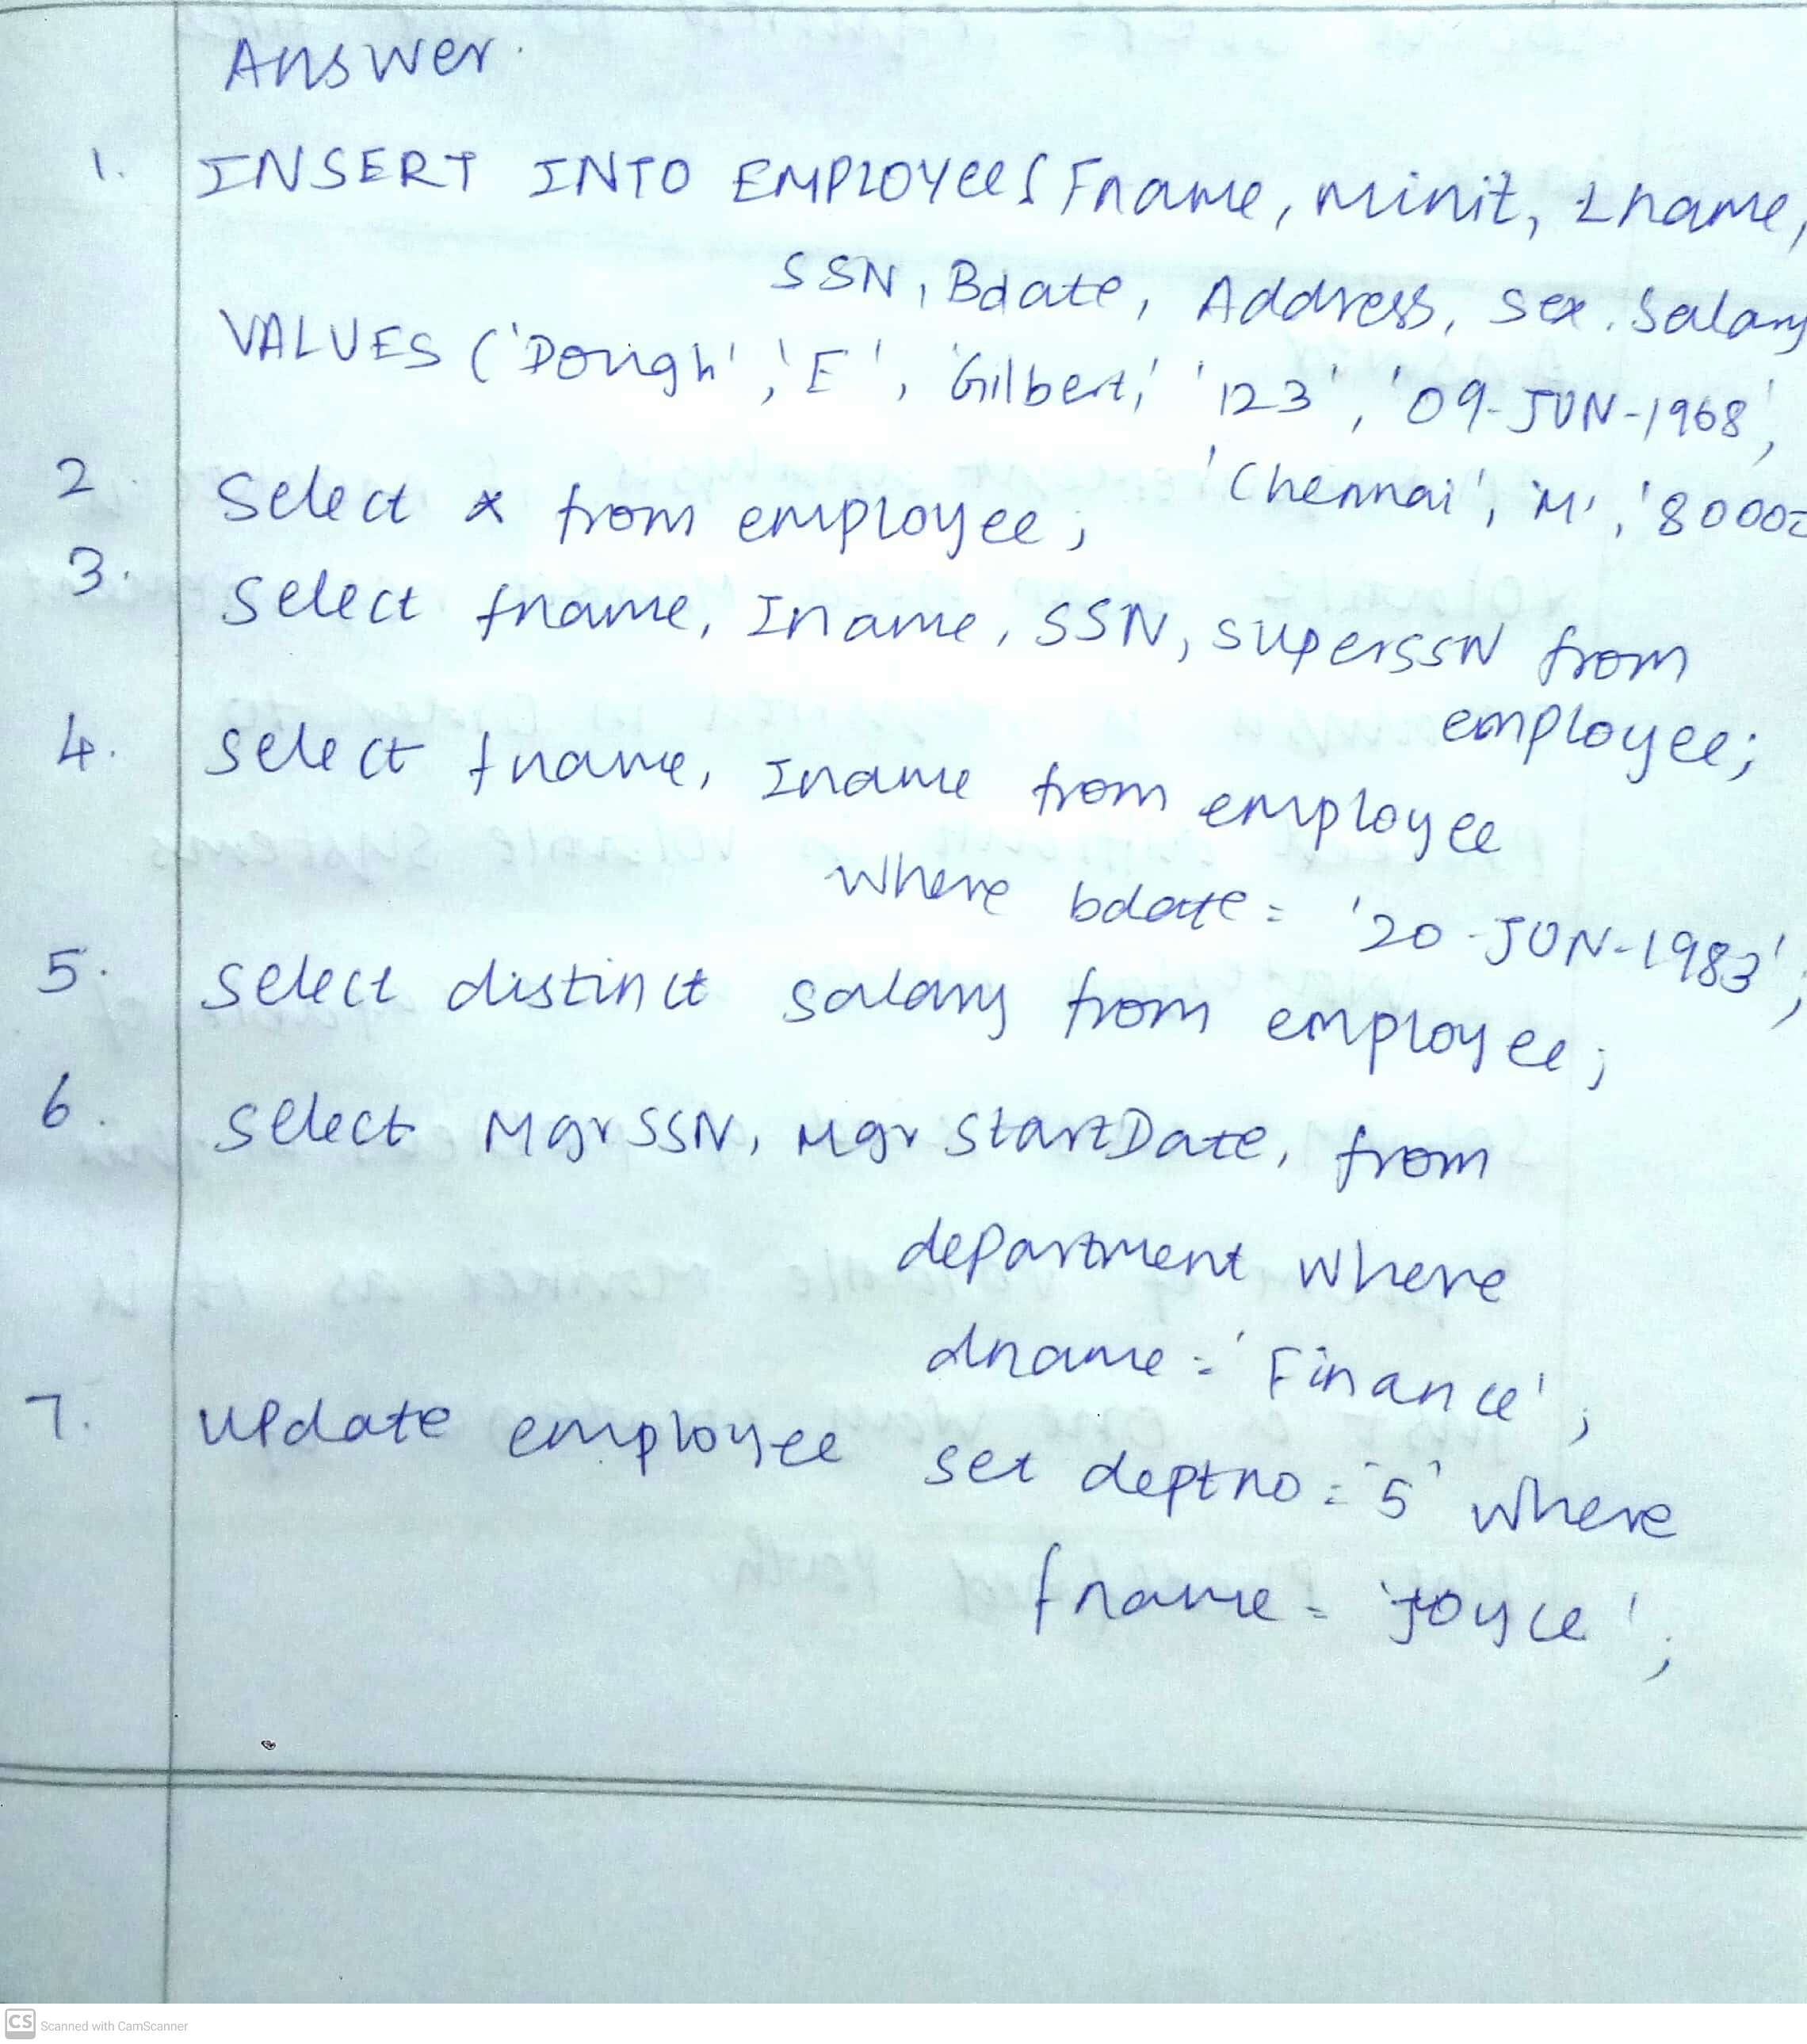 Answer.
1. INSERT INTO EMPLOYEE( Fname, minit, Lname,
SSN, Bdate, Address, Sex, Salary
VALUES ('Dough', 'E', 'Gilbert', '123', '09-JUN-1968',
'Chennai', 'M', '80000
2. Select * from employee;
3. Select fname, Iname, SSN, superssN from
employee;
4. Select fname, Iname from employee
where bdate = '20-JUN-1983';
5. select distinct salary from employee;
6. Select MgrSSN, MgrStartDate, from
department where
dname = 'Finance';
7. update employee set deptno = '5' where
fname = 'joyce';
CS Scanned with CamScanner